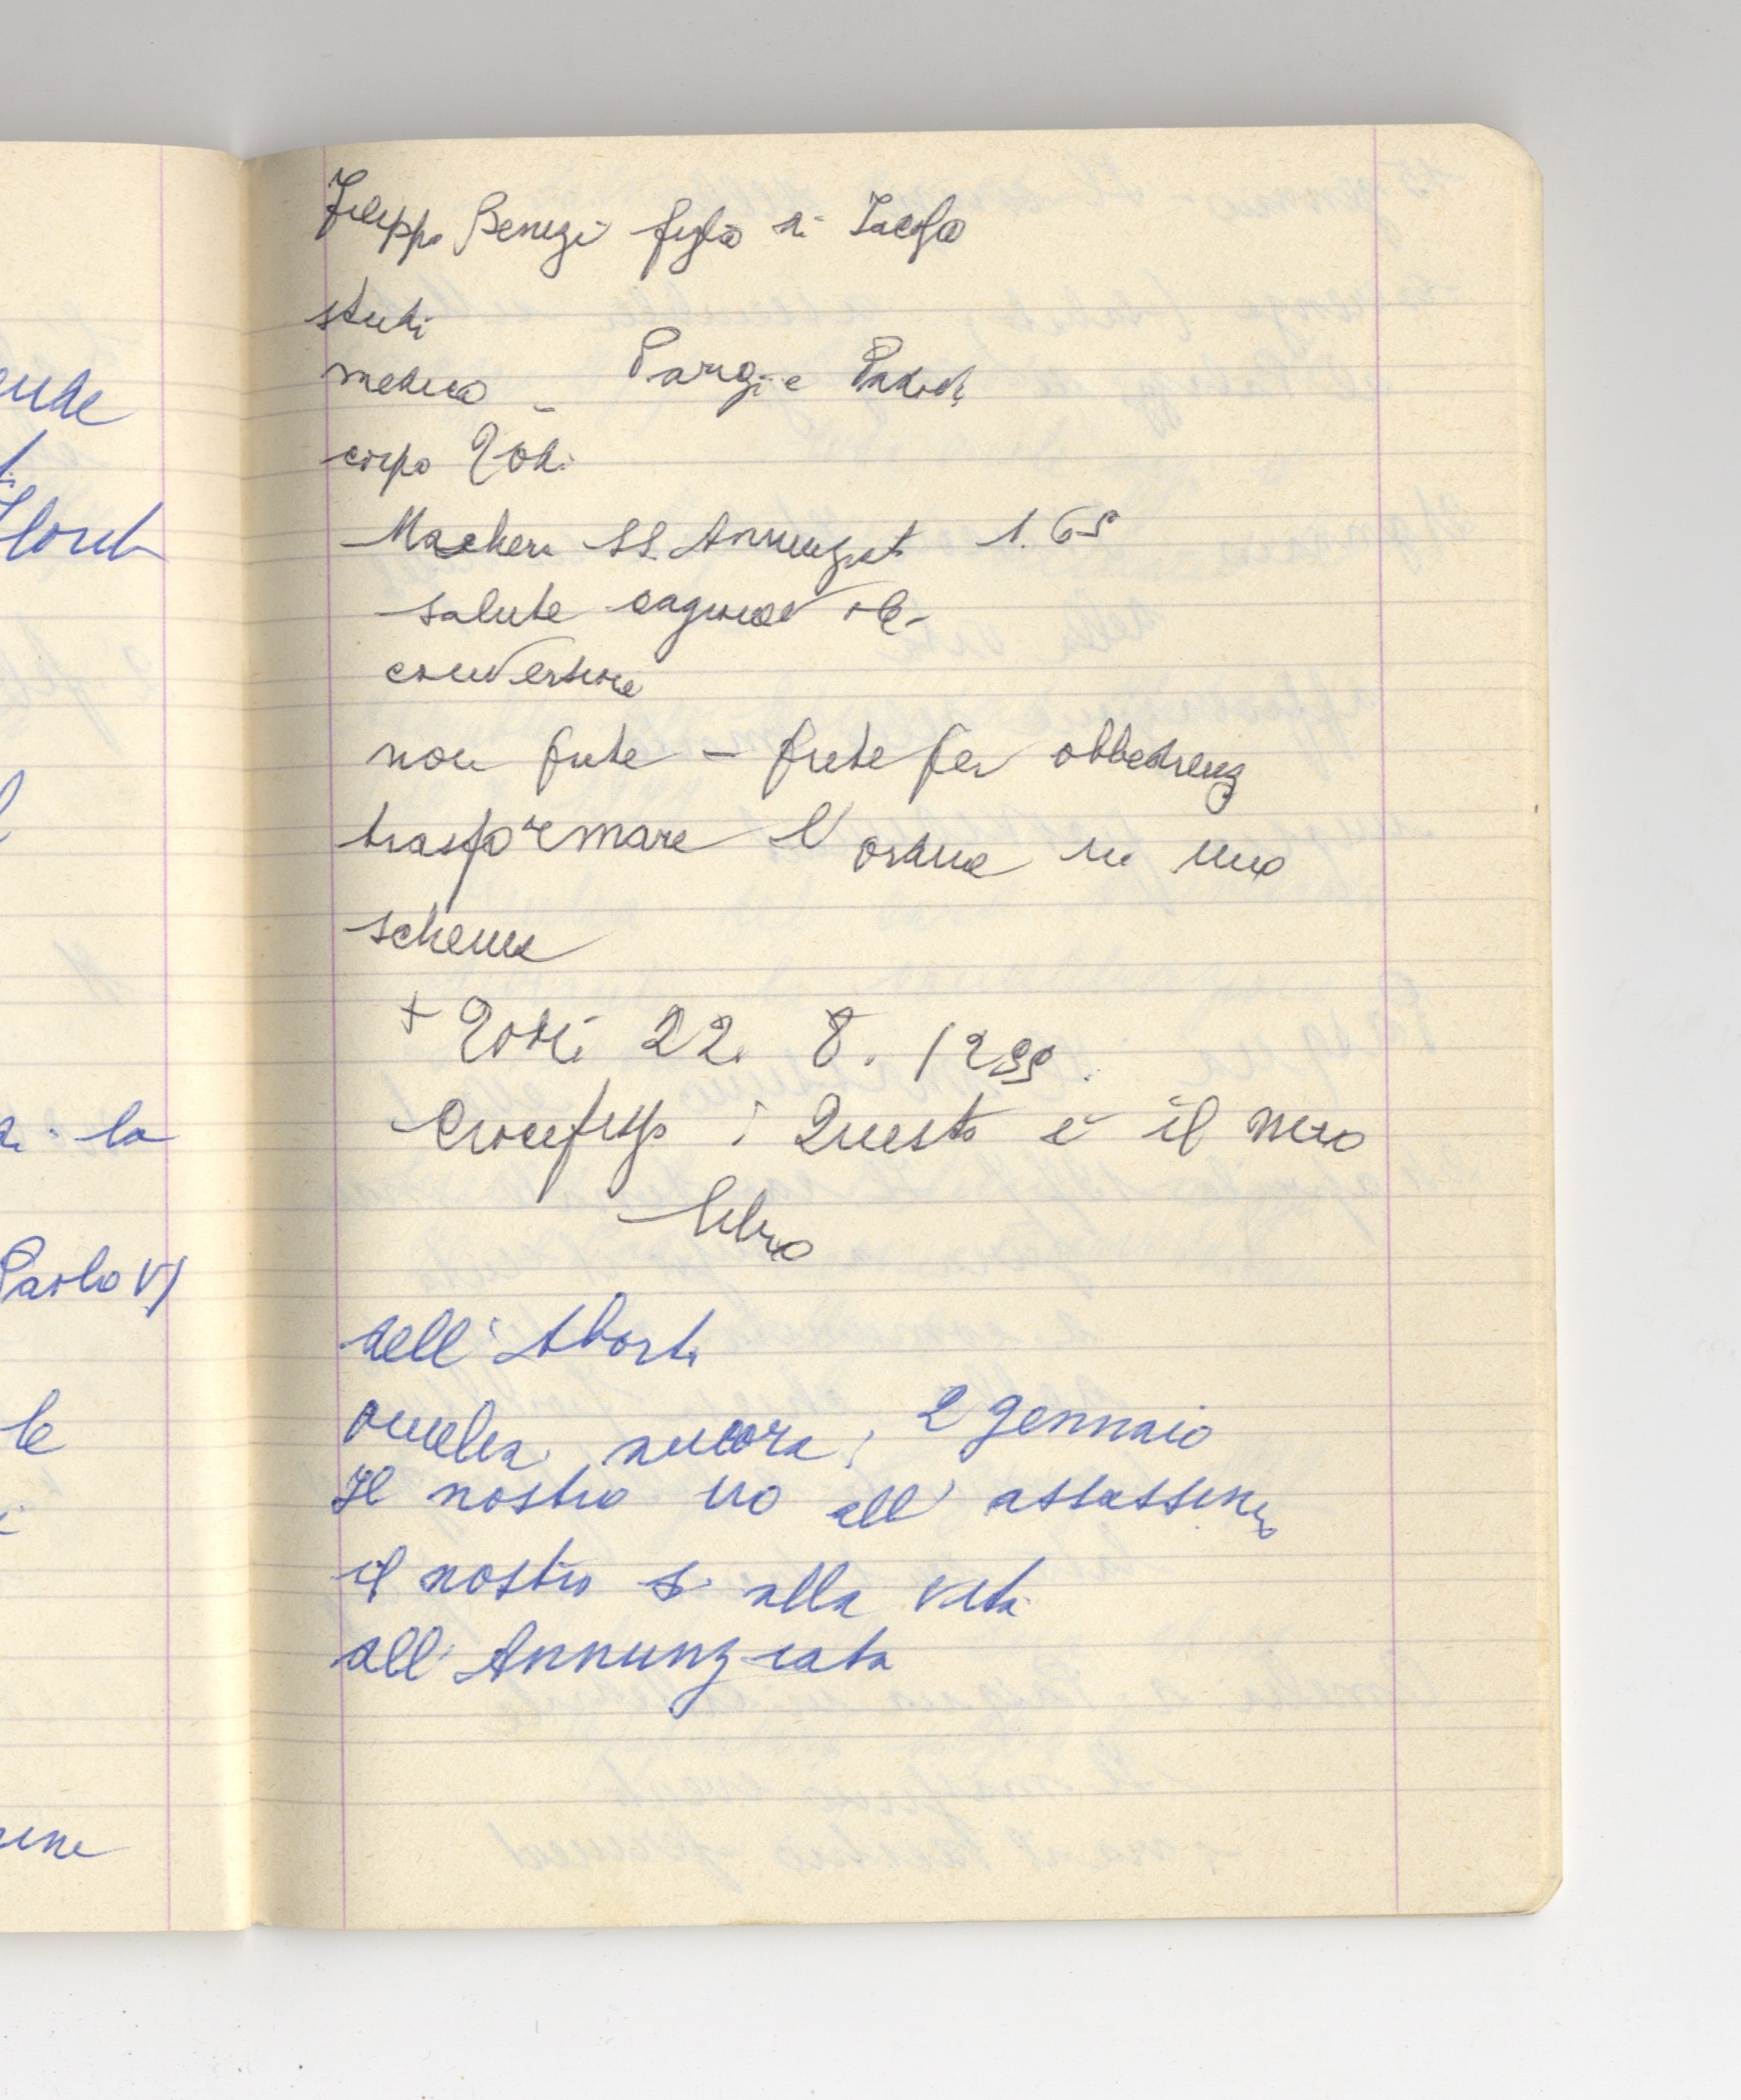 ende
Filippo Benizi figlio di Jacopo
studi
medico - Parigi e Padova
corpo Todi
Maschera SS. Annunziata 1.65
salute cagionevole
conversione
non prete - prete per obbedienza
trasformare l'ordine in uno
schema
+ Todi 22. 8. 1285.
Crocefisso : Questo è il mio
libro
dell'Aborto
omelia ancora, 2 gennaio
Il nostro no all'assassinio
il nostro sì alla vita
all'Annunziata
di la
Paolo VI
le